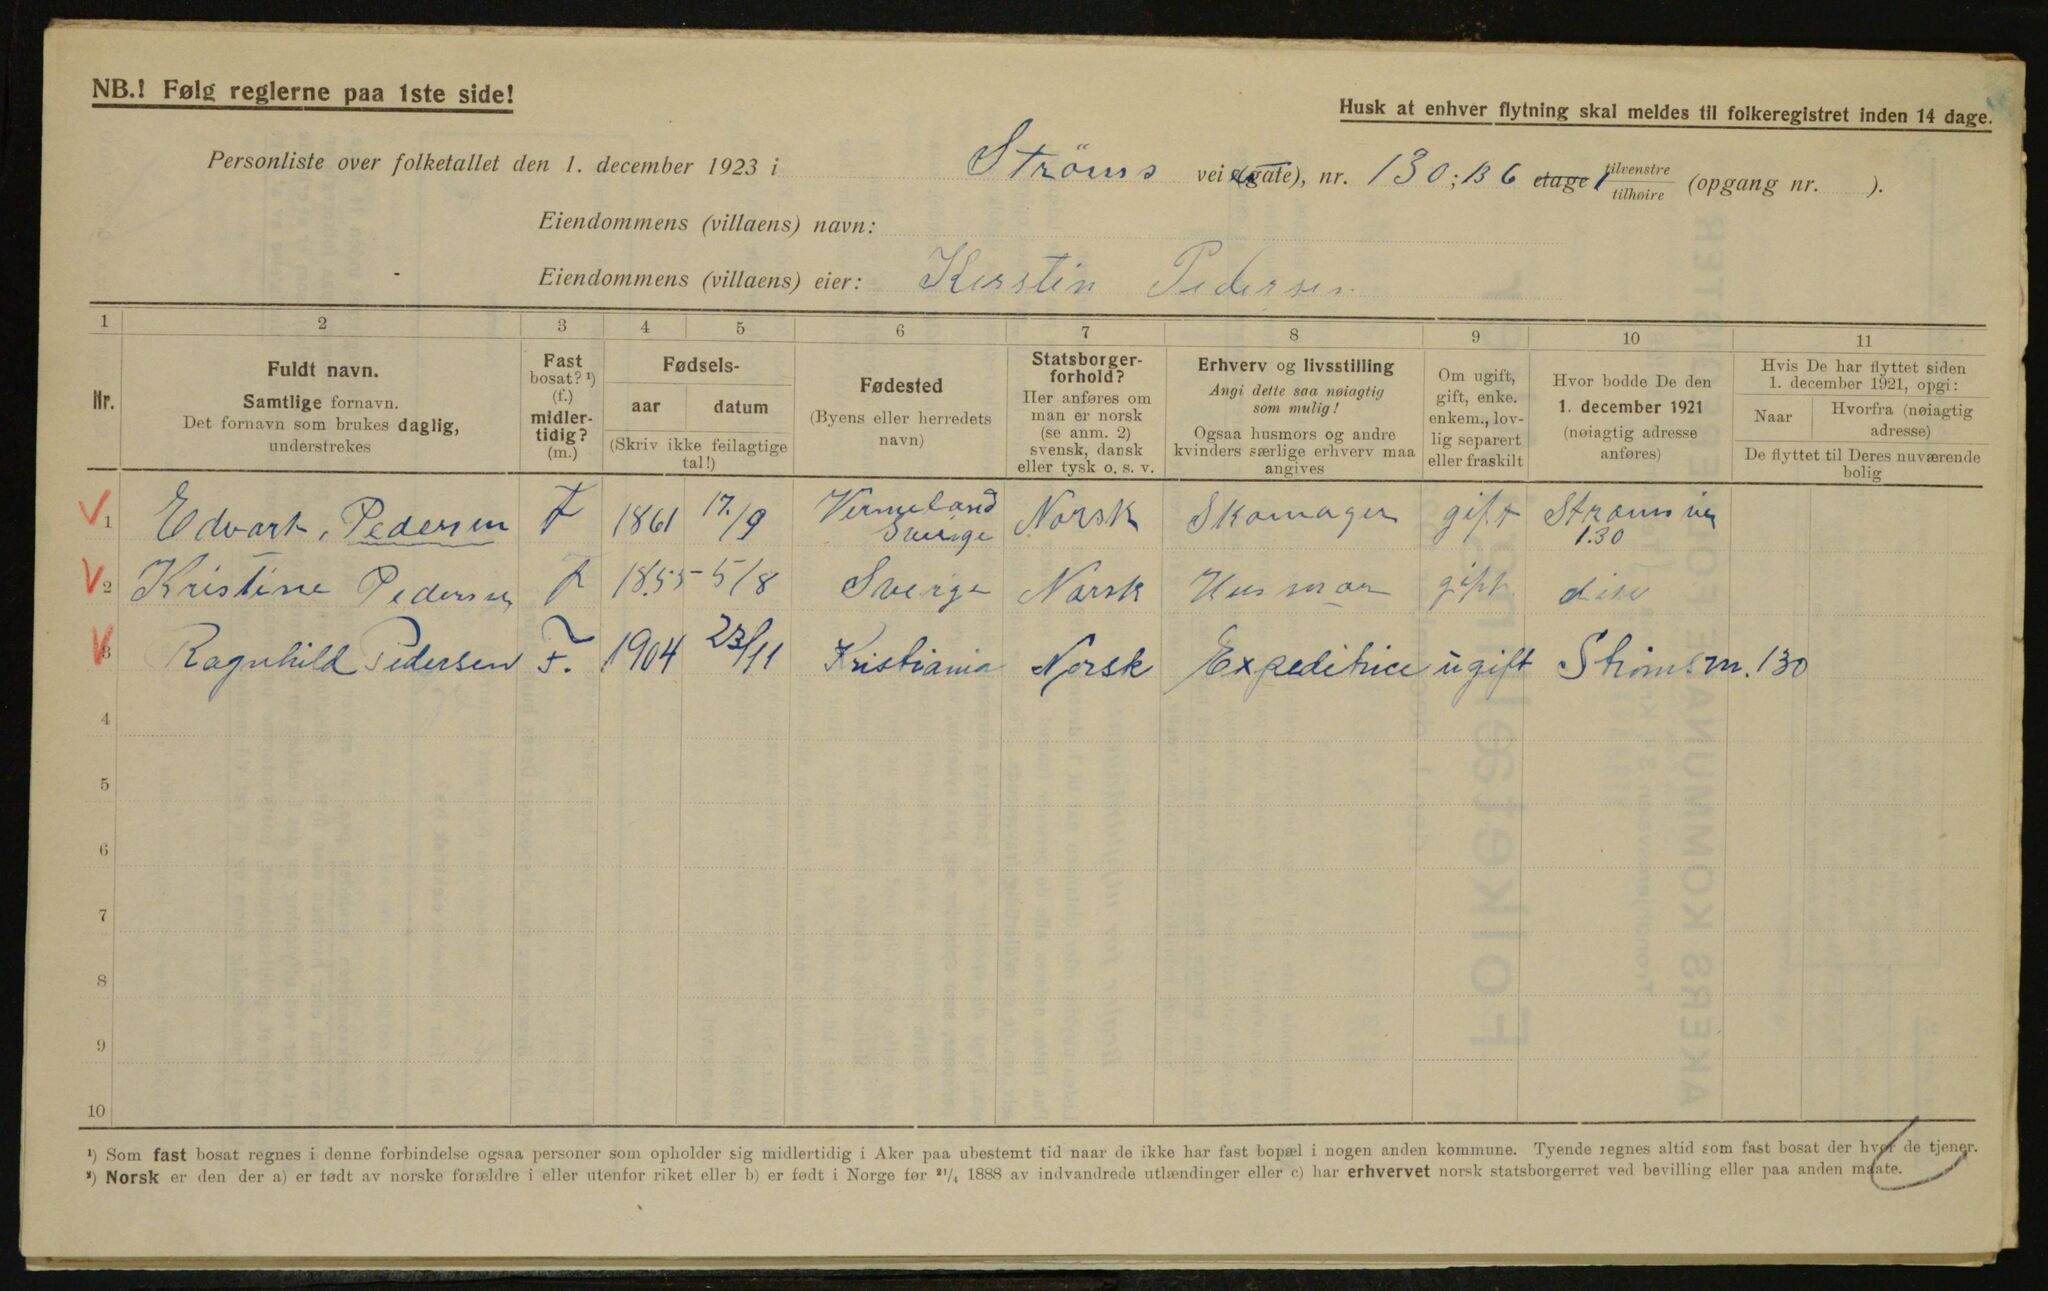 NB.! Følg reglerne paa 1ste side!
Husk at enhver flytning skal meldes til folkeregistret inden 14 dage.
Personliste over folketallet den 1. december 1923 i Ströms vei (gate), nr. 130; B 6 etage 1 tilvenstre tilhøire (opgang nr. ).
Eiendommens (villaens) navn:
Eiendommens (villaens) eier: Kerstin Pedersen
1 2 3 4 5 6 7 8 9 10 11
Nr.
Fuldt navn.
Samtlige fornavn.
Det fornavn som brukes daglig,
understrekes
Fast
bosat? ¹)
(f.)
midler-
tidig?
(m.)
Fødsels-
aar datum
(Skriv ikke feilagtige
tal!)
Fødested
(Byens eller herredets
navn)
Statsborger-
forhold?
Her anføres om
man er norsk
(se anm. 2)
svensk, dansk
eller tysk o. s. v.
Erhverv og livsstilling
Angi dette saa nøiagtig
som mulig!
Ogsaa husmors og andre
kvinders særlige erhverv maa
angives
Om ugift,
gift, enke.
enkem., lov-
lig separert
eller fraskilt
Hvor bodde De den
1. december 1921
(nøiagtig adresse
anføres)
Hvis De har flyttet siden
1. december 1921, opgi:
Naar Hvorfra (nøiagtig
adresse)
De flyttet til Deres nuværende
bolig
1 Edvart, Pedersen f 1861 17/9 Vermeland Sverige Norsk Skomager gift Stroms vei 130
2 Kristine Pedersen f 1855 5/8 Sverige Norsk Husmor gift
3 Ragnhild Pedersen F. 1904 23/11 Kristiania Norsk Expeditrice ugift Strömsv. 130
4
5
6
7
8
9
10
¹) Som fast bosat regnes i denne forbindelse ogsaa personer som opholder sig midlertidig i Aker paa ubestemt tid naar de ikke har fast bopæl i nogen anden kommune. Tyende regnes altid som fast bosat der hvor de tjener.
²) Norsk er den der a) er født av norske forældre i eller utenfor riket eller b) er født i Norge før ²¹/₄ 1888 av indvandrede utlændinger eller c) har erhvervet norsk statsborgerret ved bevilling eller paa anden maate.